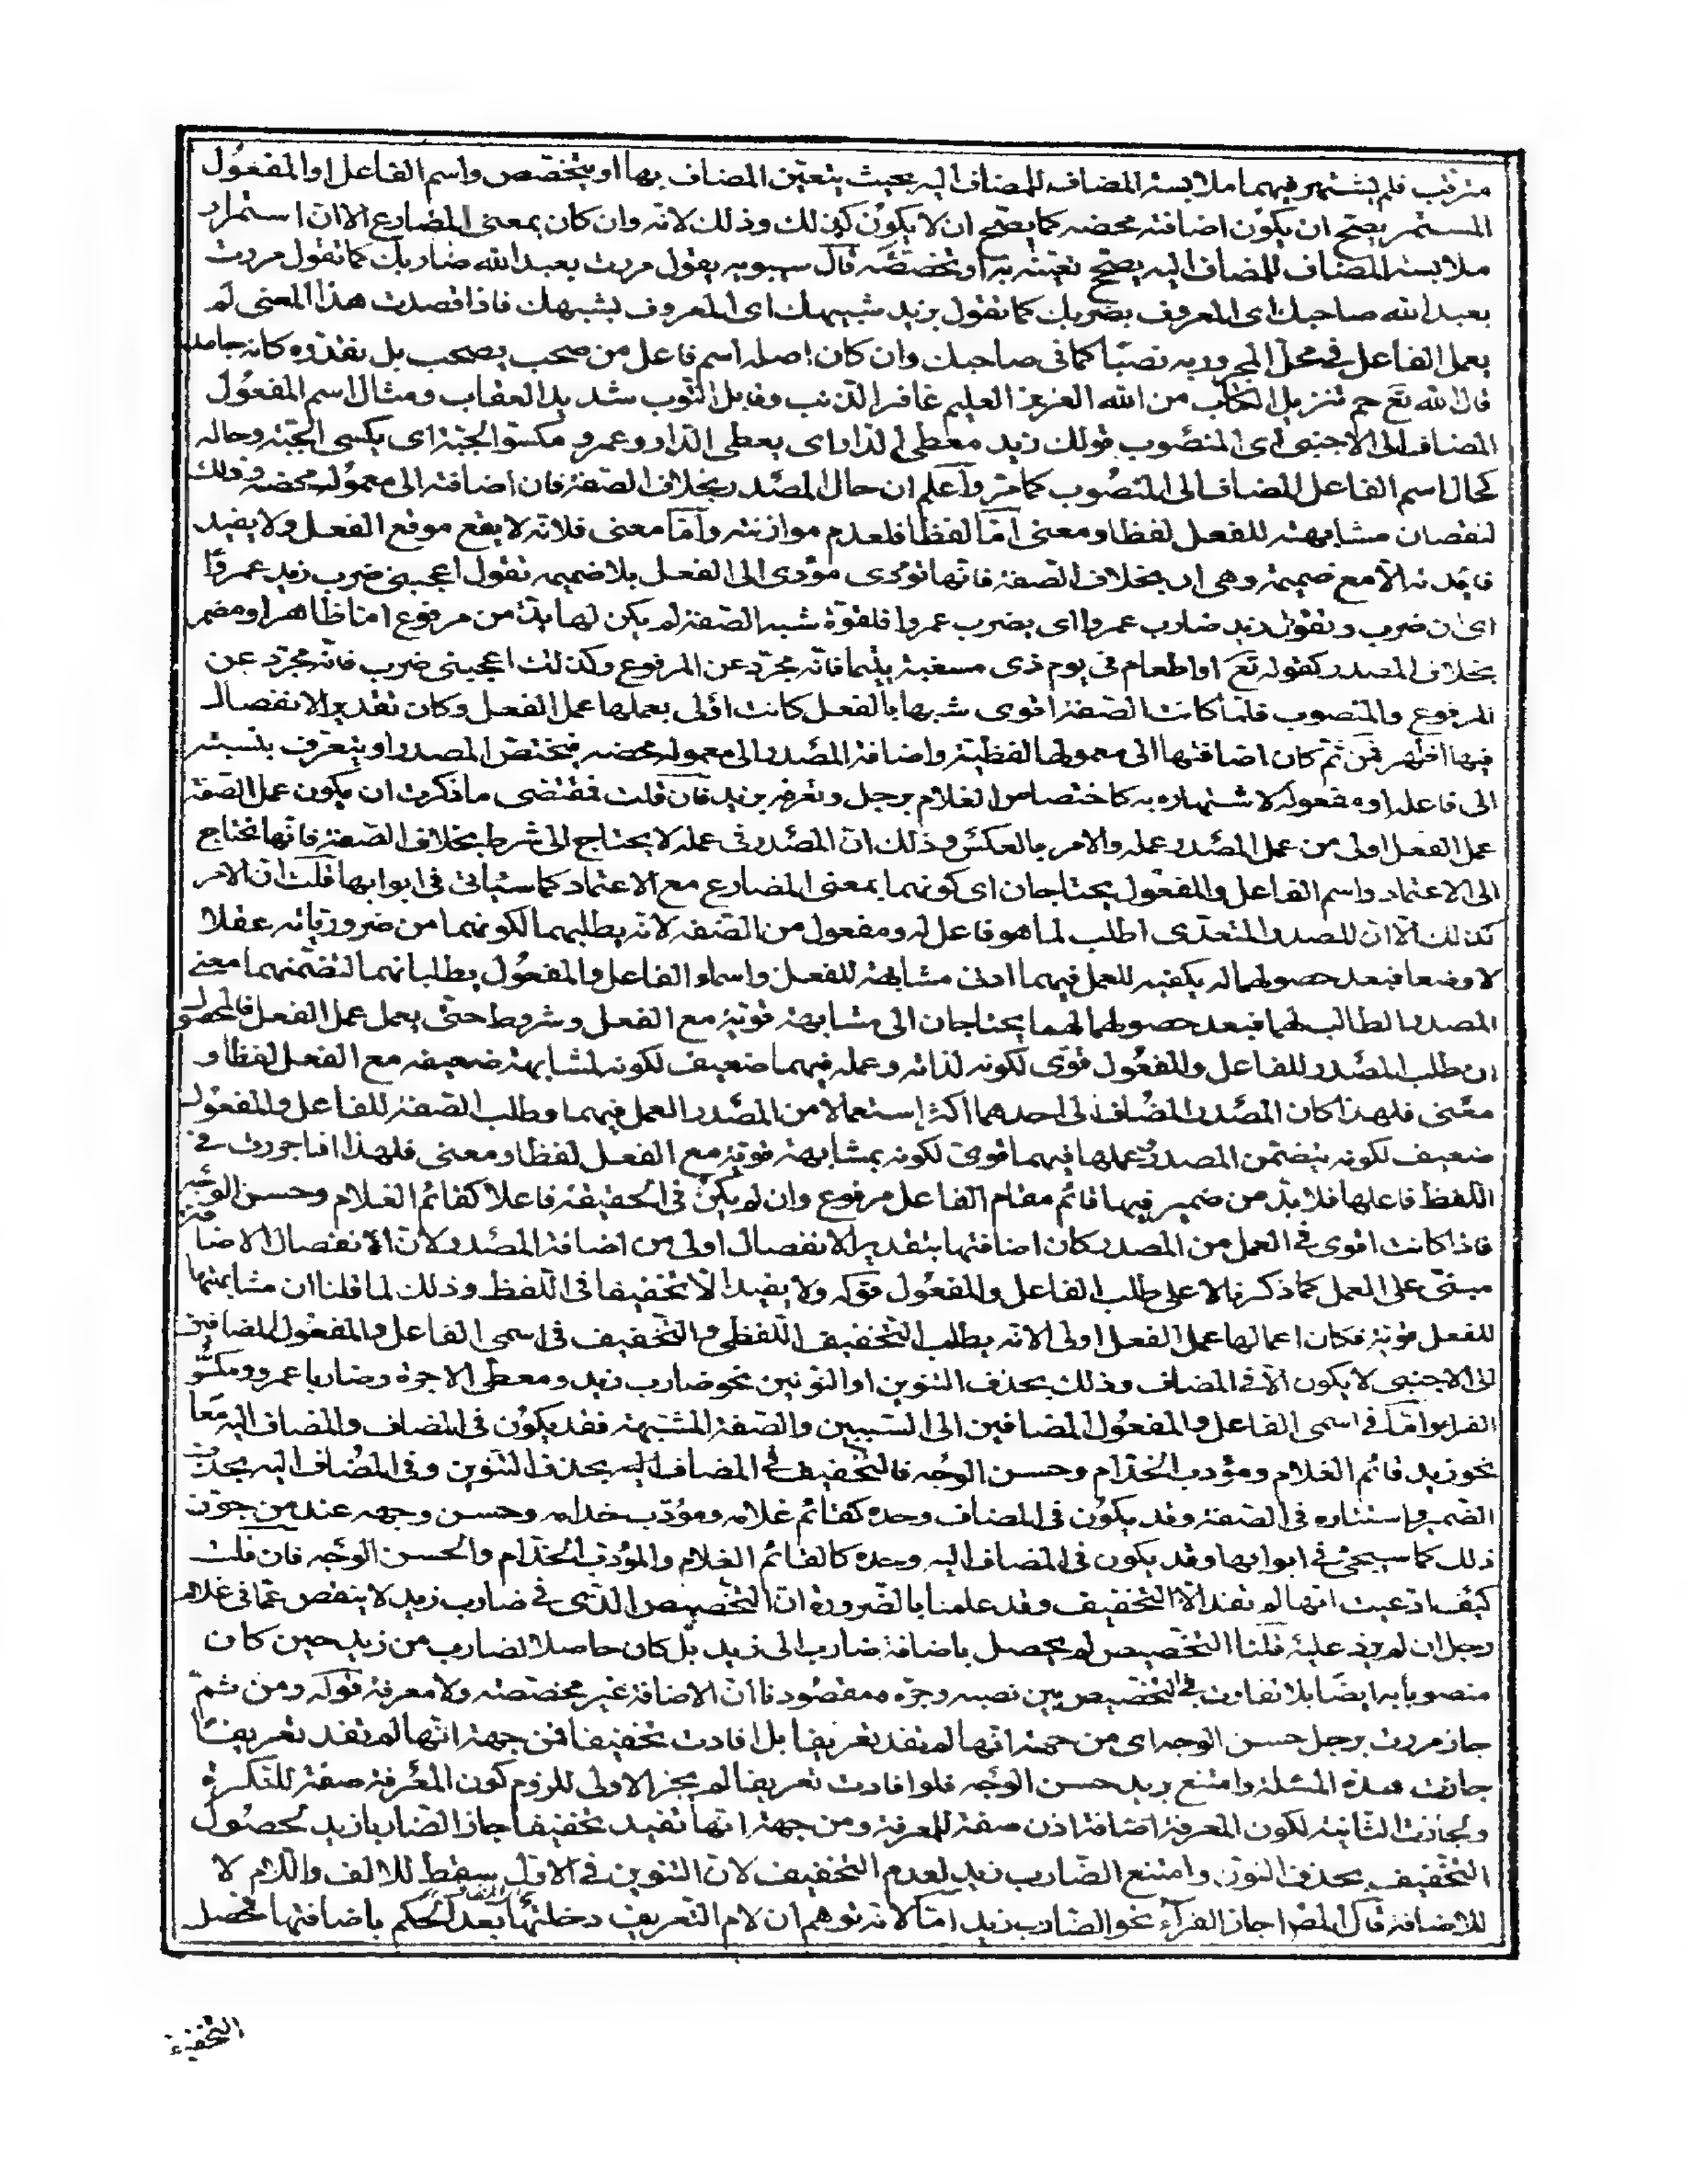 مترقب فلم يشتهر فيهما ملابسة المضاف للمضاف اليه بحيث يتعين المضاف بها او يتخصص واسم الفاعل او المفعول
المستمر يصح ان يكون اضافته محضه كما يصح ان لا يكون كذلك وذلك لانه وان كان بمعنى المضارع الا ان استمرار
ملابسة المضاف للمضاف اليه يصحح تعينه به او تخصصه قال سيبويه يقول مررت بعبد الله ضاربك كما تقول مررت
بعبد الله صاحبك اى المعروف بضربك كما تقول بزيد شبيهك اى المعروف بشبهك فاذا قصدت هذا المعنى لم
يعمل الفاعل فى محل المجرور به نصبا كما فى صاحبك وان كان اصله اسم فاعل من صحب يصحب بل نقدره كانه جامد
قال الله تع حم تنزيل الكتاب من الله العزيز العليم غافر الذنب وقابل التوب شديد العقاب ومثال اسم المفعول
المضاف الى الاجنبى اى المنصوب قولك زيد معطى الدار اى يعطى الدار وعمرو مكسو الجبة اى يكسى الجبة وحاله
كحال اسم الفاعل المضاف الى المنصوب كما مر واعلم ان حال المصدر بخلاف الصفة فان اضافته الى معموله محضة وذلك
لنقصان مشابهته للفعل لفظا ومعنى اما لفظا فلعدم موازنته واما معنى فلانه لا يقع موقع الفعل ولا يفيد
فائدته الا مع ضميمة وهى ان بخلاف الصفة فانها تؤدى مؤدى الفعل بلا ضميمه تقول اعجبنى ضرب زيد عمروا
اى ان ضرب وتقول زيد ضارب عمروا اى يضرب عمروا فلقوة شبه الصفة لم يكن لها بد من مرفوع اما ظاهر او مضمر
بخلاف المصدر كقوله تع او اطعام فى يوم ذى مسغبة يتيما فانه مجرد عن المرفوع وكذلك اعجبنى ضرب فانه مجرد عن
المرفوع والمنصوب فلما كانت الصفة اقوى شبها بالفعل كانت اولى بعملها عمل الفعل وكان تقدير الانفصال
فيها اظهر فمن ثم كان اضافتها الى معمولها لفظية واضافة المصدر الى معموله محضه فيختص المصدر او يتعرف بنسبته
الى فاعله او مفعوله لاشتهاره به كاختصاص الغلام برجل وتعرفه بزيد فان قلت فمقتضى ما ذكرت ان يكون عمل الصفة
عمل الفعل اولى من عمل المصدر عمله والامر بالعكس وذلك ان المصدر فى عمله لا يحتاج الى شرط بخلاف الصفة فانها تحتاج
الى الاعتماد واسم الفاعل والمفعول يحتاجان اى كونهما بمعنى المضارع مع الاعتماد كما سيأتى فى ابوابها قلت ان الامر
كذلك الا ان للمصدر المتعدى اطلب لما هو فاعل له ومفعول من الصفه لانه يطلبهما لكونهما من ضرورياته عقلا
لا وضعا فبعد حصولهما له يكفيه للعمل فيهما ادنى مشابهة للفعل واسماء الفاعل والمفعول يطلبانهما لتضمنهما معنى
المصدر الطالب لهما فبعد حصولهما لهما يحتاجان الى مشابهة قوية مع الفعل وشروط حتى يعمل عمل الفعل فالمحصول
ان طلب المصدر للفاعل والمفعول قوى لكونه لذاته وعمله فيهما ضعيف لكونه لمشابهة ضعيفه مع الفعل لفظا و
معنى فلهذا كان المصدر المضاف الى احدهما اكثر استعمالا من المصدر العمل فيهما وطلب الصفة للفاعل والمفعول
ضعيف لكونه بتضمن المصدر وعملها فيهما قوى لكونه بمشابهة قوية مع الفعل لفظا ومعنى فلهذا اذا جررت فى
اللفظ فاعلها فلا بد من ضمير فيها قائم مقام الفاعل مرفوع وان لم يكن فى الحقيقة فاعلا كقائم الغلام وحسن الوجه
فاذا كانت اقوى فى العمل من المصدر كان اضافتها بتقدير الانفصال اولى من اضافة المصدر لان الانفصال الاضافة
مبنى على العمل كما ذكرنا لا على طلب الفاعل والمفعول قوله ولا يفيد الا تخفيفا فى اللفظ وذلك لما قلنا ان مشابهتها
للفعل قوية فكان اعمالها عمل الفعل اولى الا انه يطلب التخفيف اللفظى والتخفيف فى اسمى الفاعل والمفعول المضافين
الى الاجنبى لا يكون الا فى المضاف وذلك بحذف التنوين او النونين نحو ضارب زيد ومعطى الاجرة وضاربا عمرو ومكسو
الفرا واما فى اسمى الفاعل والمفعول المضافين الى السببين والصفة المشبهة فقد يكون فى المضاف والمضاف اليه معا
نحو زيد قائم الغلام ومؤدب الخدام وحسن الوجه فالتخفيف فى المضاف اليه بحذف التنوين وفى المضاف اليه بحذف
الضمير واستتاره فى الصفة وقد يكون فى المضاف وحده كقائم غلامه ومؤدب خدامه وحسن وجهه عند من جوز
ذلك كما سيجئ فى ابوابها وقد يكون فى المضاف اليه وحده كالقائم الغلام والمؤدب الخدام والحسن الوجه فان قلت
كيف ادعيت انها لم تفد الا التخفيف وقد علمنا بالضرورة ان التخصيص الذى فى ضارب زيد لا ينقص عما فى غلام
رجل ان لم يزد عليه قلنا التخصيص لم يحصل باضافة ضارب الى زيد بل كان حاصلا لضارب من زيد حين كان
منصوبا به ايضا بلا تفاوت فى التخصيص بين نصبه وجره ومقصودنا ان الاضافة غير مخصصته ولا معرفة قوله ومن ثم
جاز مررت برجل حسن الوجه اى من جهة انها لم تفد تعريفا بل افادت تخفيفا فمن جهة انها لم تفد تعريفا
جازت هذه المسئلة وامتنع بزيد حسن الوجه فلو افادت تعريفا لم يجز الاولى للزوم كون المعرفة صفة للنكرة
ولجازت الثانية لكون المعرفة اضافة اذن صفة للمعرفة ومن جهة انها تفيد تخفيفا جاز الضاربا زيد لحصول
التخفيف بحذف النون وامتنع الضارب زيد لعدم التخفيف لان التنوين فى الاول سقط للالف واللام لا
للاضافة قال المص اجاز الفراء نحو الضارب زيد اما لانه توهم ان لام التعريف دخلتها بعد الحكم باضافتها فحصل